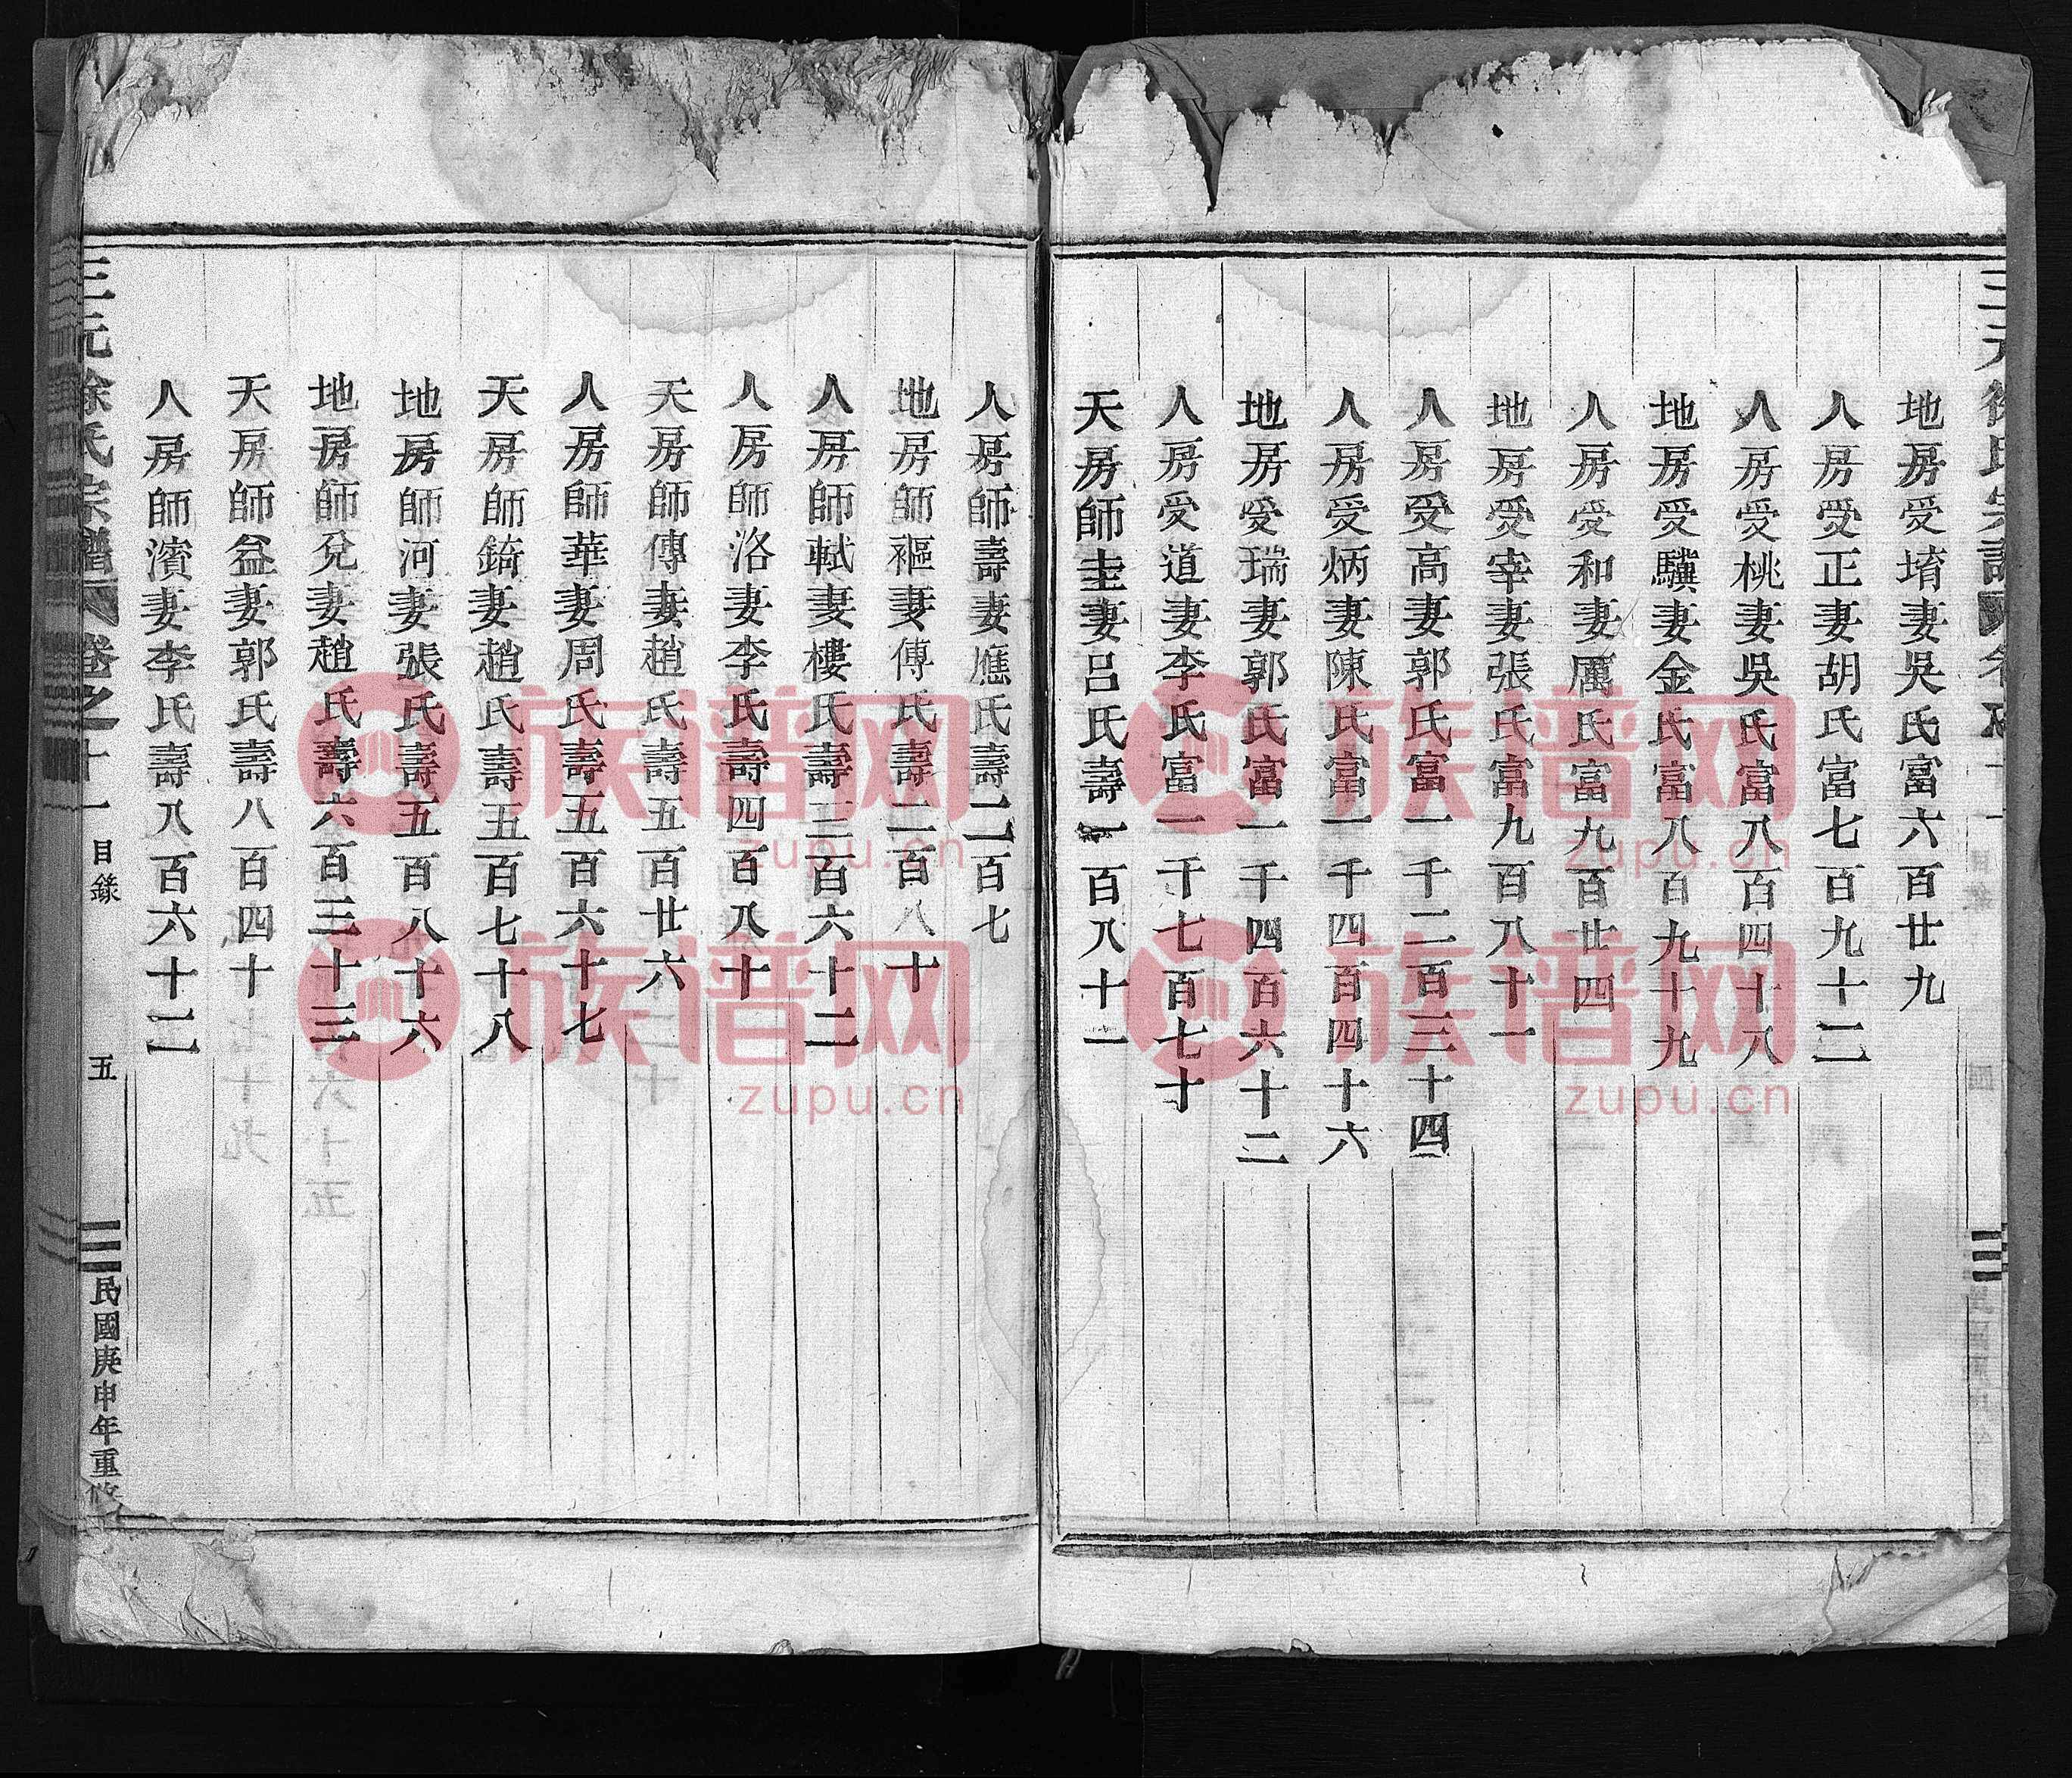 地房受堉妻吳氏富六百廿九
人房受正妻胡氏富七百九十二
人房受桃妻吳氏富八百四十八
地房受驥妻金氏富八百九十九
人房受和妻厲氏富九百廿四
地房受宰妻張氏富九百八十一
人房受高妻郭氏富一千二百三十四
人房受炳妻陳氏富一千四百四十六
地房受瑞妻郭氏富一千四百六十二
人房受道妻李氏富一千七百七十
天房師圭妻呂氏壽一百八十一
人房師壽妻應氏壽二百七
地房師樞妻傅氏壽二百八十
人房師軾妻樓氏壽三百六十二
人房師洛妻李氏壽四百八十
天房師傳妻趙氏壽五百廿六
人房師華妻周氏壽五百六十七
天房師錡妻趙氏壽五百七十八
地房師河妻張氏壽五百八十六
地房師兌妻趙氏壽六百三十三
天房師益妻郭氏壽八百四十
人房師濱妻李氏壽八百六十二
三元徐氏宗譜 卷之十一 目錄 五 民國庚申年重修
族谱网
zupu.cn
族谱网
zupu.cn
族谱网
zupu.cn
族谱网
zupu.cn